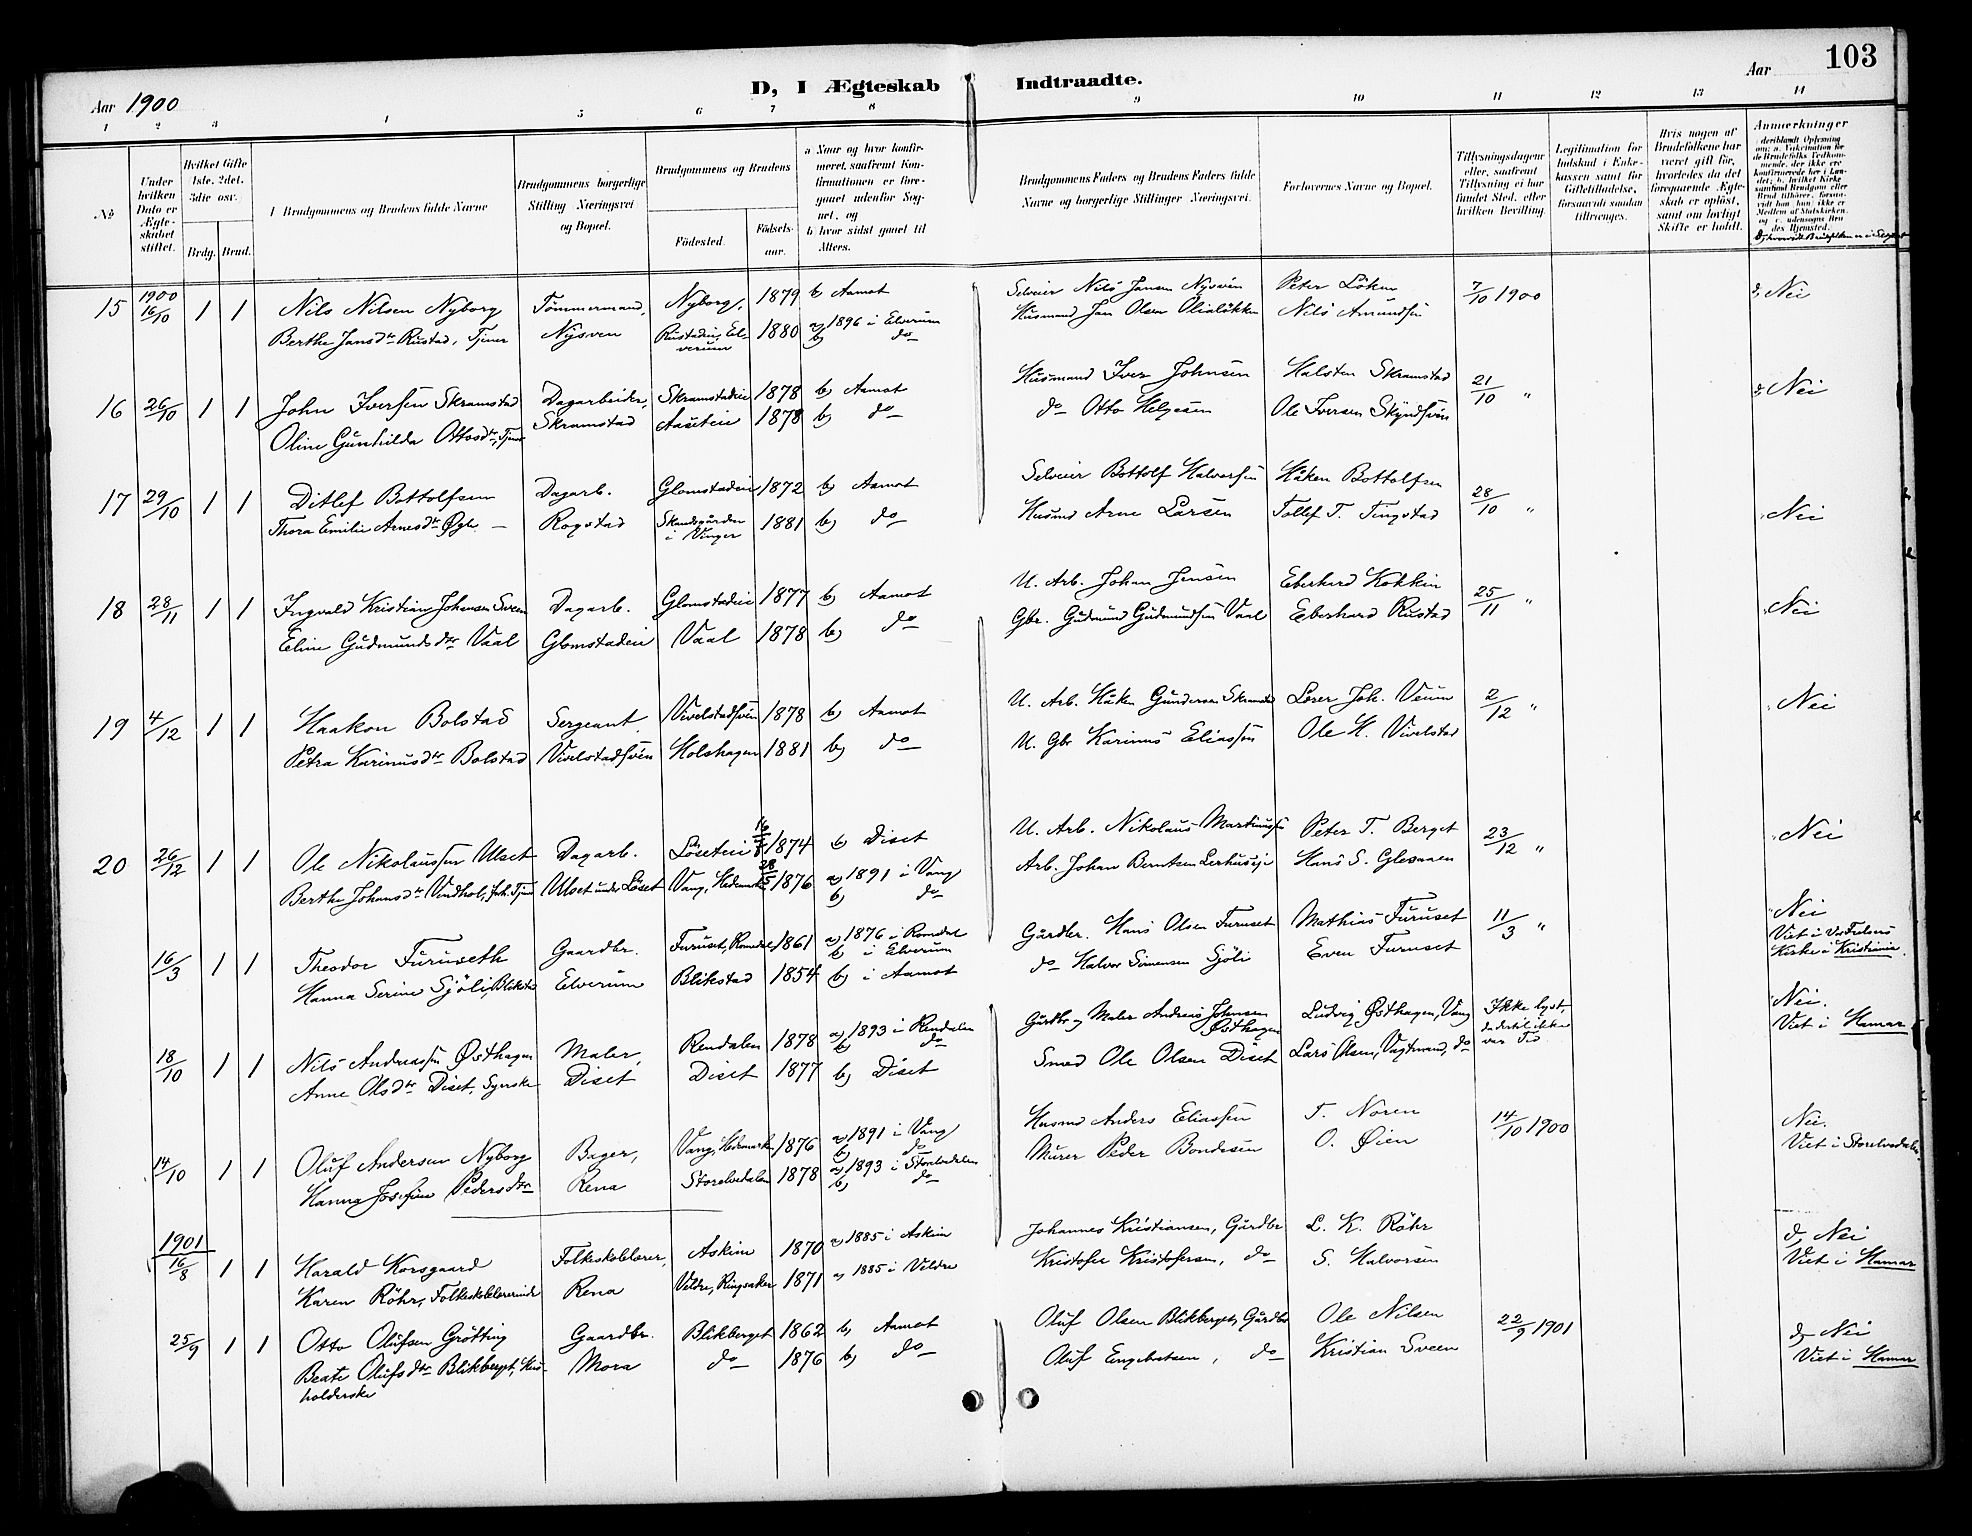 103
D, I Ægteskab Indtraadte.
Aar 1900
Aar
1 2 3 4 5 6 7 8 9 10 11 12 13 14
No
Under hvilken Dato er Ægteskabet stiftet.
Hvilket Gifte 1ste, 2det, 3die osv.
Brdg. Brud.
Brudgommens og Brudens fulde Navne
Brudgommens borgerlige Stilling Næringsvei og Bopæl.
Brudgommens og Brudens
Fødested.
Fødselsaar.
a Naar og hvor konfirmeret, saafremt Konfirmationen er foregaaet udenfor Sognet, og
b hvor sidst gaaet til Alters.
Brudgommens Faders og Brudens Faders fulde Navne og borgerlige Stillinger Næringsvei.
Forlovernes Navne og Bopæl.
Tillysningsdagene eller, saafremt Tillysning ei har fundet Sted, efter hvilken Bevilling.
Legitimation for Indskud i Enkekassen samt for Giftetilladelse, forsaavidt saadan tiltrænges.
Hvis nogen af Brudefolkene har været gift før, hvorledes da det foregaaende Ægteskab er opløst, samt om lovligt Skifte er holdt.
Anmerkninger
15 1900 16/10 1 1 Nils Nilsen Nyborg Tømmermand, Nyborg, 1879 b) Aamot Selveier Nils Jansen Nysven Peter Löken 7/10 1900 d, Nei
Berthe Jansdtr Rustad, Tjener Nysven Rustadeie, Elverum 1880 a) 1896 i Elverum b) do Husmand Jan Olsen Olialökken Nils Amundsen
16 26/10 1 1 John Iversen Skramstad Dagarbeider, Skramstadeie 1878 b) Aamot Husmand Iver Johnsen Halsten Skramstad 21/10 " d, Nei
Oline Gunhilda Ottosdtr, Tjener Skramstad Aaseteie 1878 b) do do Otto Helgesen Ole Iversen Skyndsven
17 29/10 1 1 Ditlef Bottolfsen Dagarb. Glomstadeie 1872 b) Aamot Selveier Bottolf Halvorsen Håken Bottolfsen 28/10 " Nei
Thora Emilie Arnesdtr Øgle — Rogstad i Vinger 1881 b) do Husmd Arne Larsen Tollef T. Tingstad
18 28/11 1 1 Ingvald Kristian Johansen Sveen Dagarb. Glomstadeie 1877 b) Aamot U. Arb. Johan Jensen Eberhard Kokkin 25/11 " Nei
Eline Gudmundsdtr Vaal Glomstadeie Vaal 1878 b) do Gbr. Gudmund Gudmundsen Vaal Eberhard Rustad
19 4/12 1 1 Haakon Bolstad Sergeant, Vivelstadsven 1878 b) Aamot U. Arb. Håken Gundersen Skramstad Lærer Joh. Veum 2/12 " Nei
Petra Karinusdtr Bolstad Vivelstadsven Holshagen 1881 b) do U. Gbr Karinus Eliassen Ole H. Vivelstad
20 26/12 1 1 Ole Nikolaussen Ulset Dagarb. Löseteie 1874 b) Diset U. Arb. Nikolaus Martinussen Peter T. Berget 23/12 " Nei
Berthe Johansdtr Vindhol, Tjener Ulset under Löset Vang, Hedemarken 28/5 1876 a) 1891 i Vang b) do Arb. Johan Berntsen Lerhuseie Hans S. Glesaaen
16/3 1 1 Theodor Furuseth Gaardbr. Furuset, Romedal 1861 a) 1876 i Romedal b) i Elverum Gårdbr. Hans Olsen Furuset Mathias Furuset 11/3 " Nei
Viet i Vor Frelsers Kirke i Kristiania.
Hanna Serine Sjöli, Blikstad Elverum Blikstad 1854 b) i Aamot do Halvor Simensen Sjöli Even Furuset
18/10 1 1 Nils Andreassen Østhagen Maler, Rendalen 1878 a) 1893 i Rendalen b) do Gårdbr og Maler Andreas Johnsen Østhagen Ludvig Østhagen, Vang Ikke lyst, da dertil ikke var Tid Nei.
Viet i Hamar
Anne Olsdtr Diset, Syerske Diset Diset 1877 b) Diset Smed Ole Olsen Diset Lars Olsen, Vagtmand, do
14/10 1 1 Oluf Andersen Nyborg Bager, Vang, Hedemarken 1876 a) 1891 i Vang b) do Husmd Anders Eliassen T. Noren 14/10 1900 Nei.
Viet i Storelvedalen
Hanna Josefine Pedersdtr Rena Storelvedalen 1878 a) 1893 i Storelvedalen b) do Murer Peder Bondesen O. Øien
1901
16/8 1 1 Harald Korsgaard Folkeskolelærer, Askim 1870 a) 1885 i Askim Johannes Kristiansen, Gårdbr L. K. Röhr d, Nei
Viet i Hamar
Karen Röhr, Folkeskolelærerinde Rena Veldre, Ringsaker 1871 a) 1885 i Veldre Kristofer Kristofersen, do S. Halvorsen
25/9 1 1 Otto Olufsen Grötting Gaardbr. Blikberget 1862 b) Aamot Oluf Olsen Blikberget, Gårdbr Ole Nilsen 22/9 1901 d, Nei
Viet i Hamar
Beate Olufsdtr Blikberget, Husholderske Mora do 1876 b) do Oluf Engebretsen, do Kristian Sveen